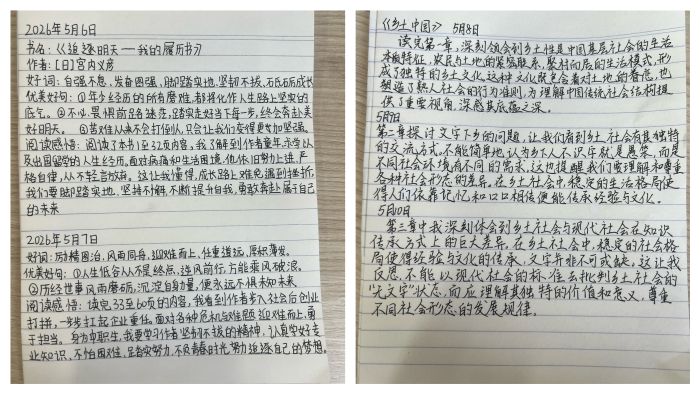 2026年5月6日
书名：《追逐明天——我的履历书》
作者：[日]宫内义彦
好词：自强不息，发奋图强，脚踏实地，坚韧不拔，砥砺成长
优美好句：①年少经历的所有磨难，都将化作人生路上坚实的
底气。②不必畏惧前路迷茫，踏实走好当下每一步，终会奔赴美
好明天。③苦难从来不会打倒人，只会让我们变得更加坚强。
阅读感悟：阅读了本书1至32页内容，我了解到作者童年、求学以
及出国留学的人生经历。面对病痛和生活困境，他依旧努力上进，严
格自律，从不轻言放弃。这让我懂得，成长路上难免遇到挫折，
我们要脚踏实地，坚持不懈，不断提升自我，勇敢奔赴属于自己
的未来
2026年5月7日
好词：励精图治，风雨同舟，迎难而上，任重道远，厚积薄发。
优美好句：①人生低谷从不是终点，逆风前行，方能乘风破浪。
②历经世事风雨磨砺，沉淀自身力量，便永远不惧未知未来
阅读感悟：读完33至60页的内容，我看到作者步入社会后创业
打拼，一步步扛起企业重任。面对各种危机与难题，迎难而上，勇
于担当。身为中职生，我要学习作者坚韧不拔的精神，认真学好专
业知识，不怕困难，踏实努力，不负青春时光，努力追逐自己的梦想。
《乡土中国》 5月8日
读完第一章，深刻领会到乡土性是中国基层社会的生活
本质特征，农民与土地的紧密联系、聚村而居的生活模式，形
成了独特的乡土文化，这种文化既包含着对土地的眷恋，也
塑造了熟人社会的行为准则，为理解中国传统社会结构提
供了重要视角，深感其底蕴之深。
5月9日
第二章探讨文字下乡的问题，让我们看到乡土社会有其独特
的交流方式，不能简单地认为乡下人不识字就是愚笨，而是
不同社会环境有不同的需求，这也提醒我们要理解和尊重
各种社会形态的差异，在乡土社会中，稳定的生活格局使
得人们依靠记忆和口口相传便能传承经验与文化。
5月10日
第三章中我深刻体会到乡土社会与现代社会在知识
传承方式上的巨大差异，在乡土社会中，稳定的社会格
局使得经验与文化的传承，文字并非不可或缺，这让我
反思，不能以现代社会的标准去批判乡土社会的
“无文字”状态，而应理解其独特的价值和意义，尊重
不同社会形态的发展规律。